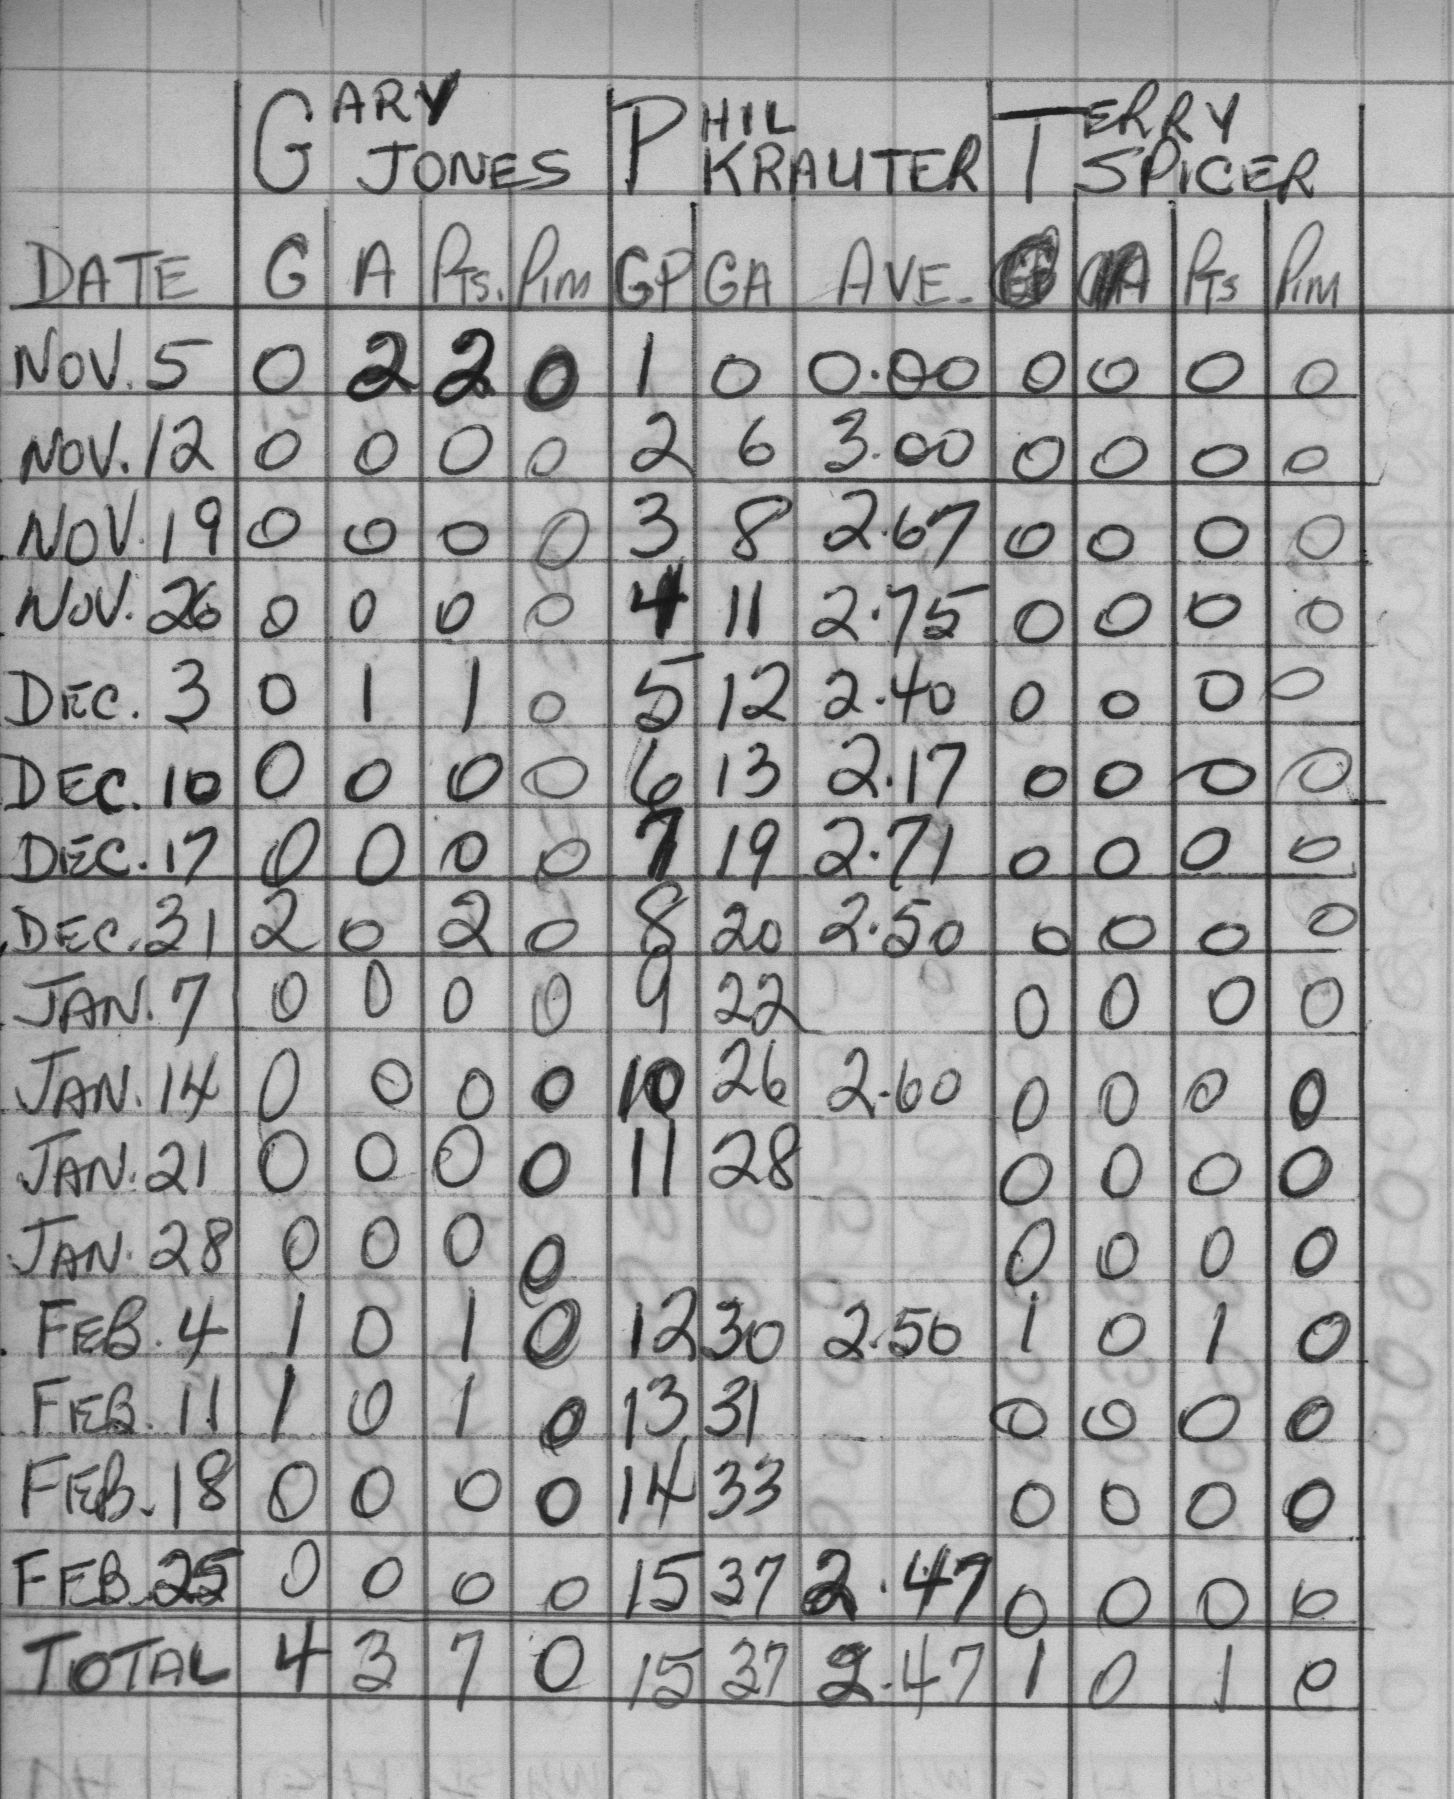 GARY JONES PHIL KRAUTER TERRY SPICER
DATE G A PTS. PIM GP GA AVE. G A PTS PIM
NOV. 5 0 2 2 0 1 0 0.00 0 0 0 0
NOV. 12 0 0 0 0 2 6 3.00 0 0 0 0
NOV. 19 0 0 0 0 3 8 2.67 0 0 0 0
NOV. 26 0 0 0 0 4 11 2.75 0 0 0 0
DEC. 3 0 1 1 0 5 12 2.40 0 0 0 0
DEC. 10 0 0 0 0 6 13 2.17 0 0 0 0
DEC. 17 0 0 0 0 7 19 2.71 0 0 0 0
DEC. 31 2 0 2 0 8 20 2.50 0 0 0 0
JAN. 7 0 0 0 0 9 22 0 0 0 0
JAN. 14 0 0 0 0 10 26 2.60 0 0 0 0
JAN. 21 0 0 0 0 11 28 0 0 0 0
JAN. 28 0 0 0 0 0 0 0 0
FEB. 4 1 0 1 0 12 30 2.50 1 0 1 0
FEB. 11 1 0 1 0 13 31 0 0 0 0
FEB. 18 0 0 0 0 14 33 0 0 0 0
FEB. 25 0 0 0 0 15 37 2.47 0 0 0 0
TOTAL 4 3 7 0 15 37 2.47 1 0 1 0